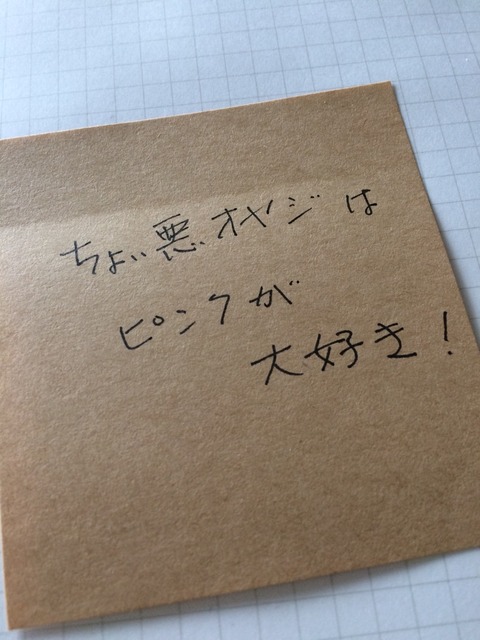 ちょい悪オヤジは
ピンクが
大好き!